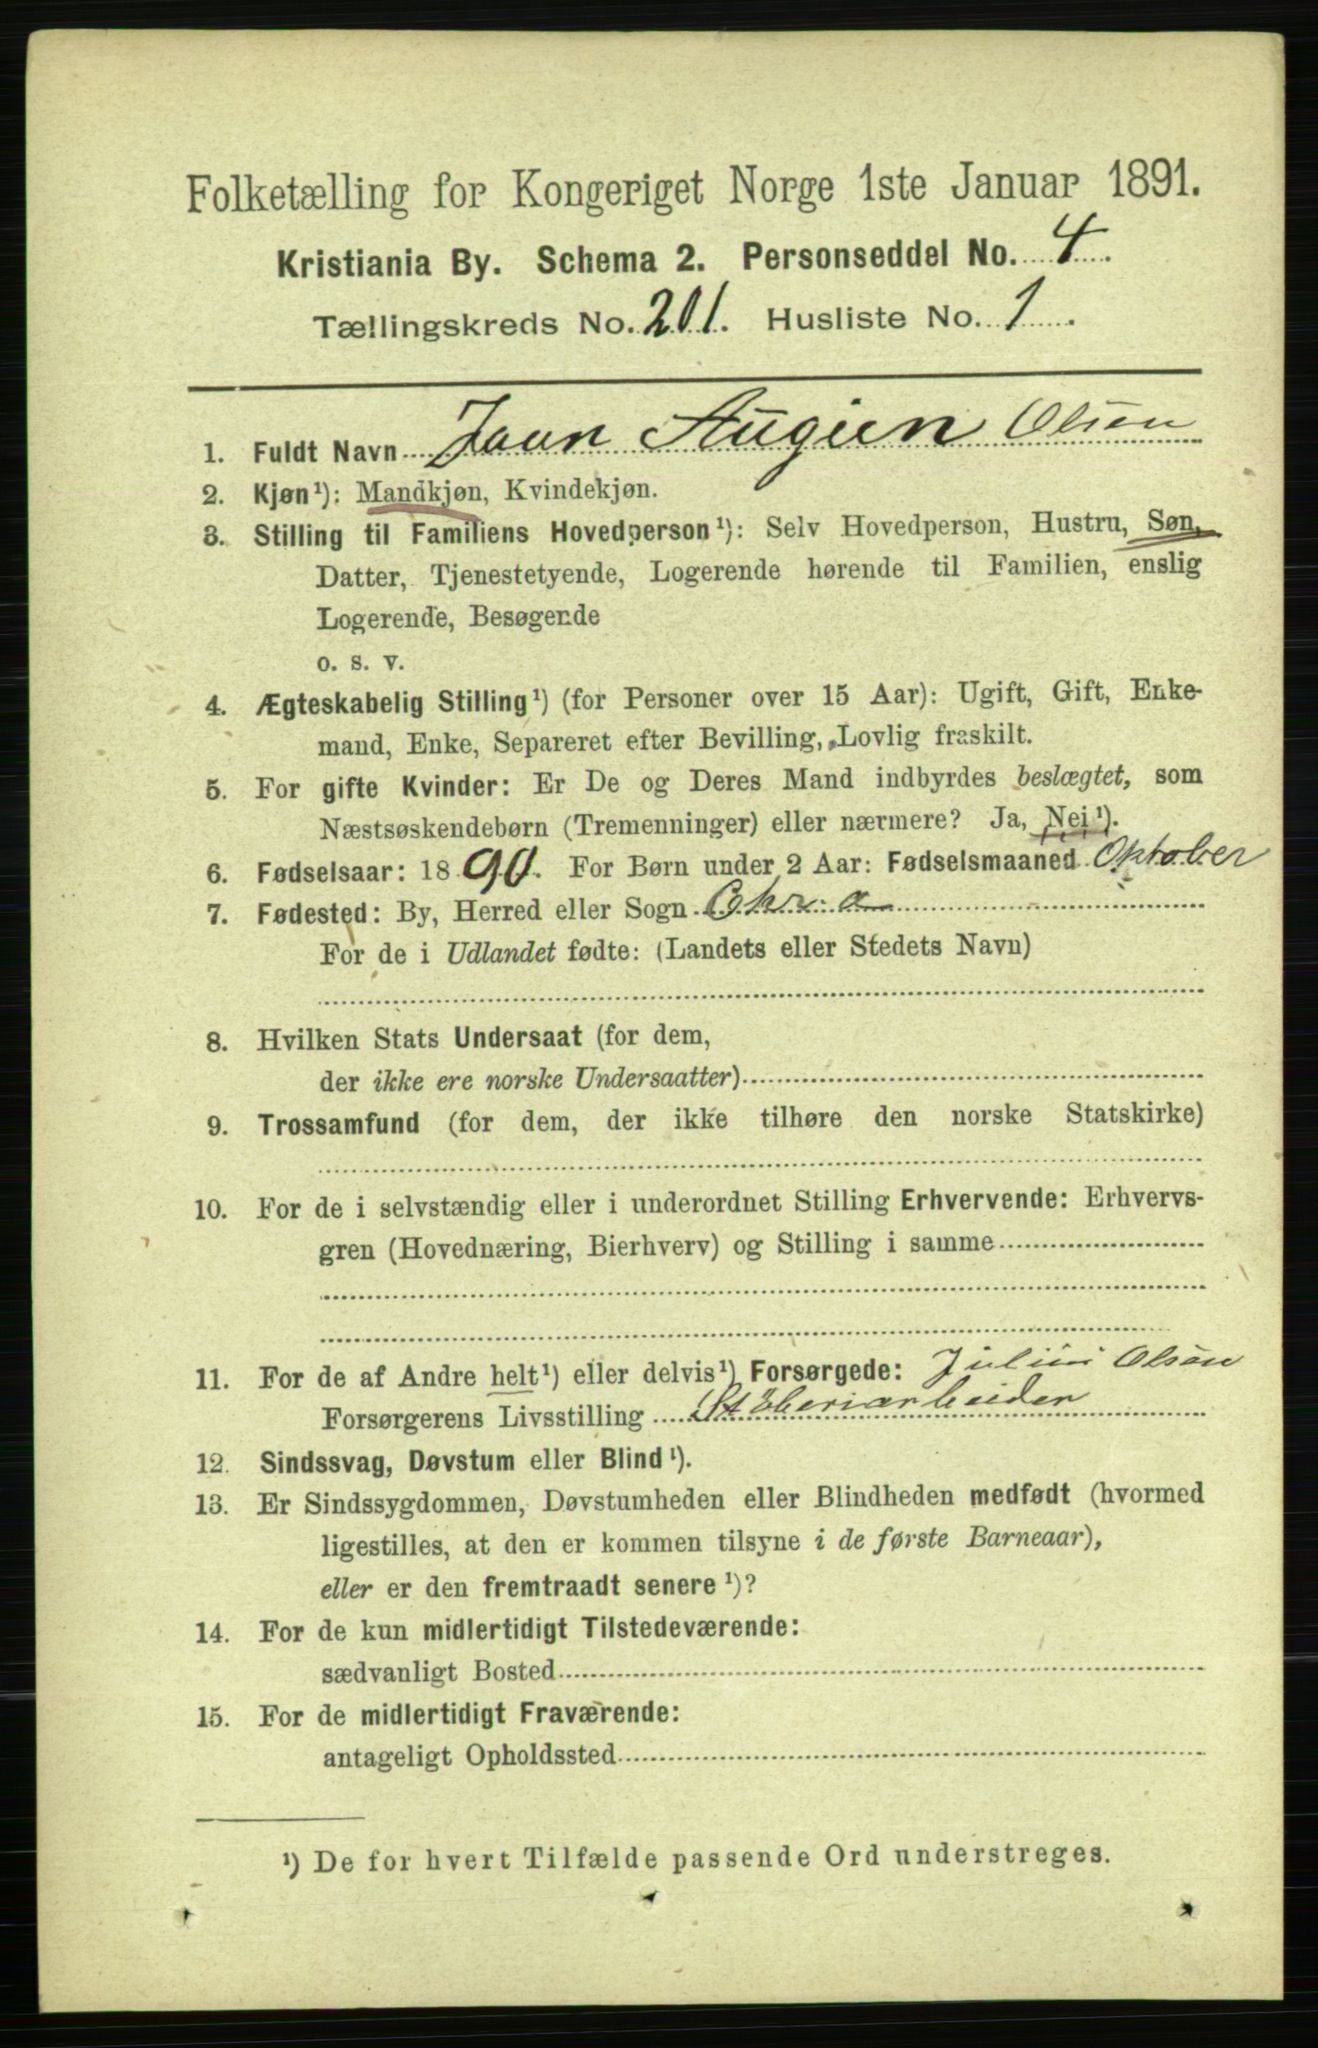 Folketælling for Kongeriget Norge 1ste Januar 1891.
Kristiania By. Schema 2. Personseddel No. 4.
Tællingskreds No. 201. Husliste No. 1.
1. Fuldt Navn Olsen
2. Kjøn¹): Mandkjøn, Kvindekjøn.
3. Stilling til Familiens Hovedperson¹): Selv Hovedperson, Hustru, Søn,
Datter, Tjenestetyende, Logerende hørende til Familien, enslig
Logerende, Besøgende
o. s. v.
4. Ægteskabelig Stilling¹) (for Personer over 15 Aar): Ugift, Gift, Enke-
mand, Enke, Separeret efter Bevilling, Lovlig fraskilt.
5. For gifte Kvinder: Er De og Deres Mand indbyrdes beslægtet, som
Næstsøskendebørn (Tremenninger) eller nærmere? Ja, Nei¹).
6. Fødselsaar: 1890. For Børn under 2 Aar: Fødselsmaaned Oktober
7. Fødested: By, Herred eller Sogn Chr:a
For de i Udlandet fødte: (Landets eller Stedets Navn)
8. Hvilken Stats Undersaat (for dem,
der ikke ere norske Undersaatter)
9. Trossamfund (for dem, der ikke tilhøre den norske Statskirke)
10. For de i selvstændig eller i underordnet Stilling Erhvervende: Erhvervs-
gren (Hovednæring, Bierhverv) og Stilling i samme
11. For de af Andre helt¹) eller delvis¹) Forsørgede: Olsen
Forsørgerens Livsstilling Stöberiarbeider
12. Sindssvag, Døvstum eller Blind¹).
13. Er Sindssygdommen, Døvstumheden eller Blindheden medfødt (hvormed
ligestilles, at den er kommen tilsyne i de første Barneaar),
eller er den fremtraadt senere¹)?
14. For de kun midlertidigt Tilstedeværende:
sædvanligt Bosted
15. For de midlertidigt Fraværende:
antageligt Opholdssted
¹) De for hvert Tilfælde passende Ord understreges.